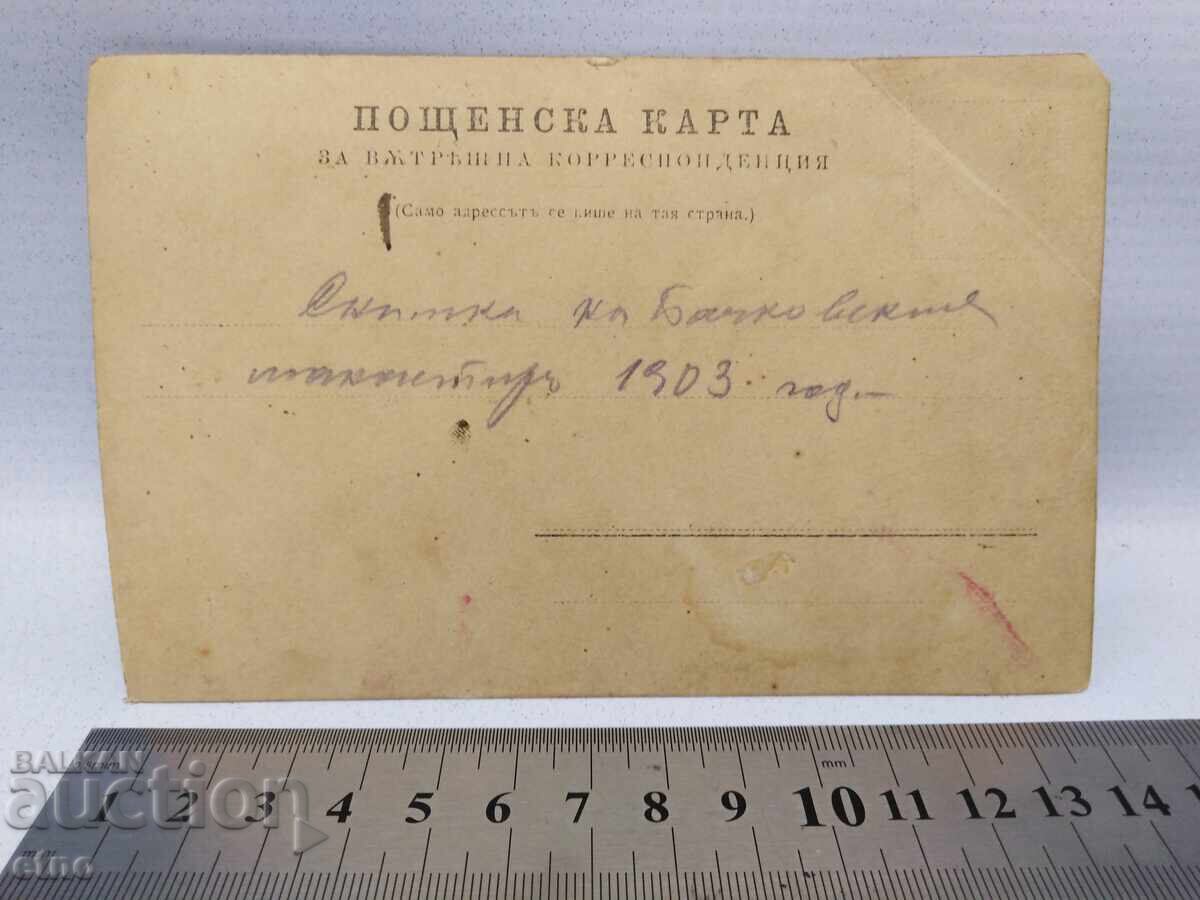 ПОЩЕНСКА КАРТА
ЗА ВѪТРѢШНА КОРРЕСПОНДЕНЦИЯ
(Само адрессътъ се пише на тая страна.)
Снимка на Бачковския
манастиръ 1903. год.—
BALKAN
auction
etno
mm
1 2 3 4 5 6 7 8 9 10 11 12 13 14